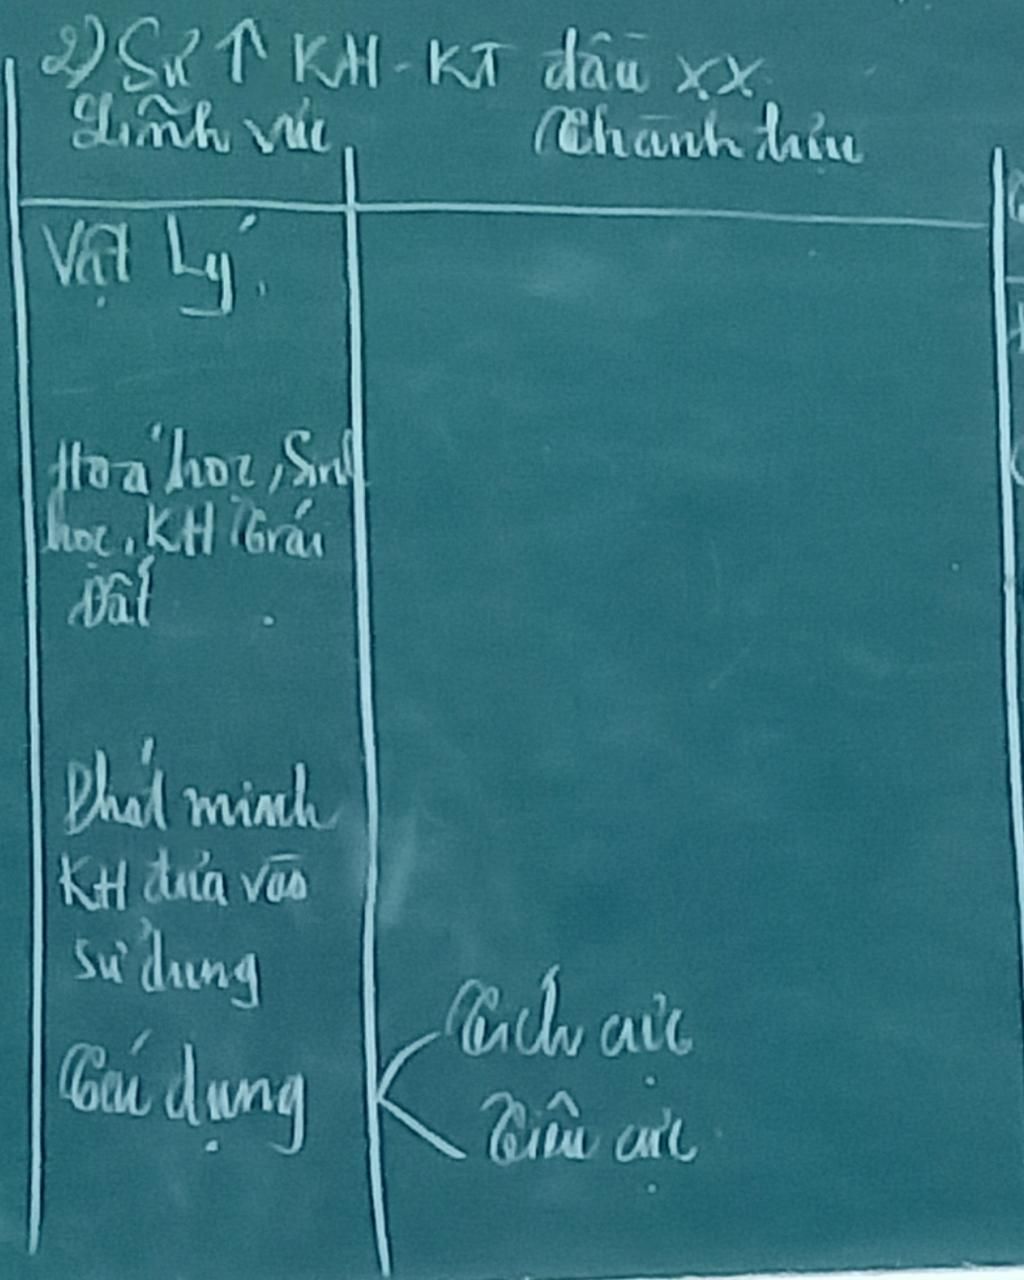 2) Sự ↑ KH - KT đầu XX
Lĩnh vực
Thành tựu
Vật Lý
Hoá học, Sinh
học, KH Trái
Đất
Phát minh
KH đưa vào
sử dụng
Tác dụng
Tích cực
Tiêu cực